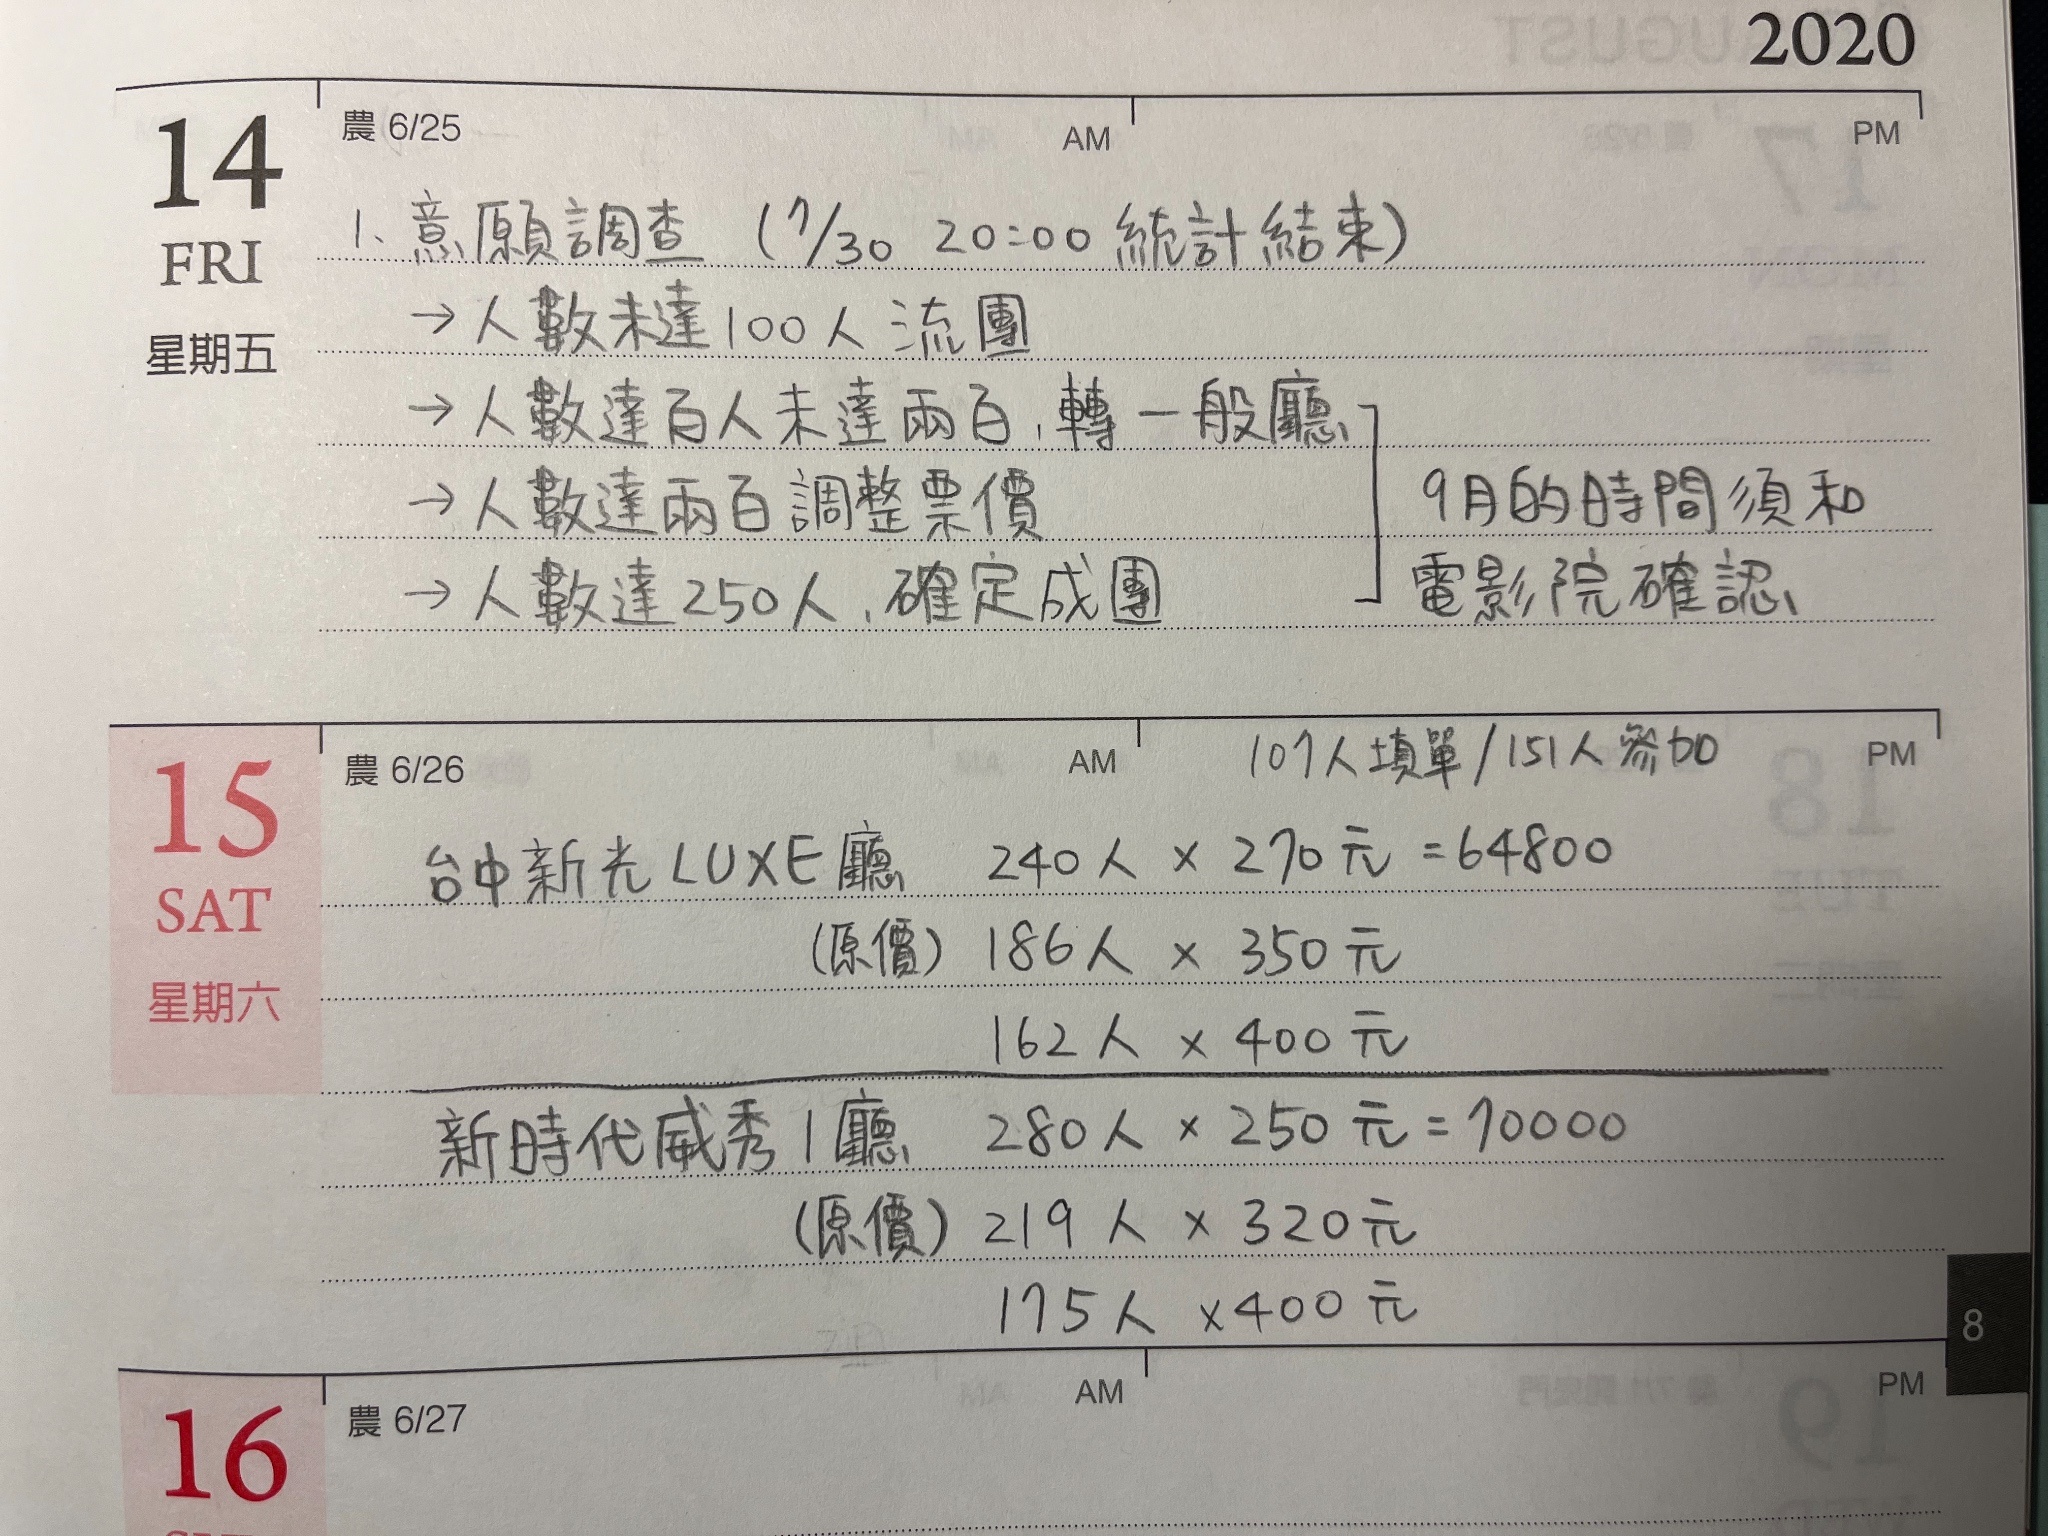 2020
14
FRI
星期五
農 6/25
AM
PM
1、意願調查 (7/30 20:00 統計結束)
→人數未達100人流團
→人數達百人未達兩百,轉一般廳
→人數達兩百調整票價
→人數達250人,確定成團
9月的時間須和
電影院確認
15
SAT
星期六
農 6/26
AM
107人填單/151人參加
PM
台中新光LUXE廳 240人 × 270元 = 64800
(原價) 186人 × 350元
162人 × 400元
新時代威秀1廳 280人 × 250元 = 70000
(原價) 219人 × 320元
175人 × 400元
8
16
農 6/27
AM
PM